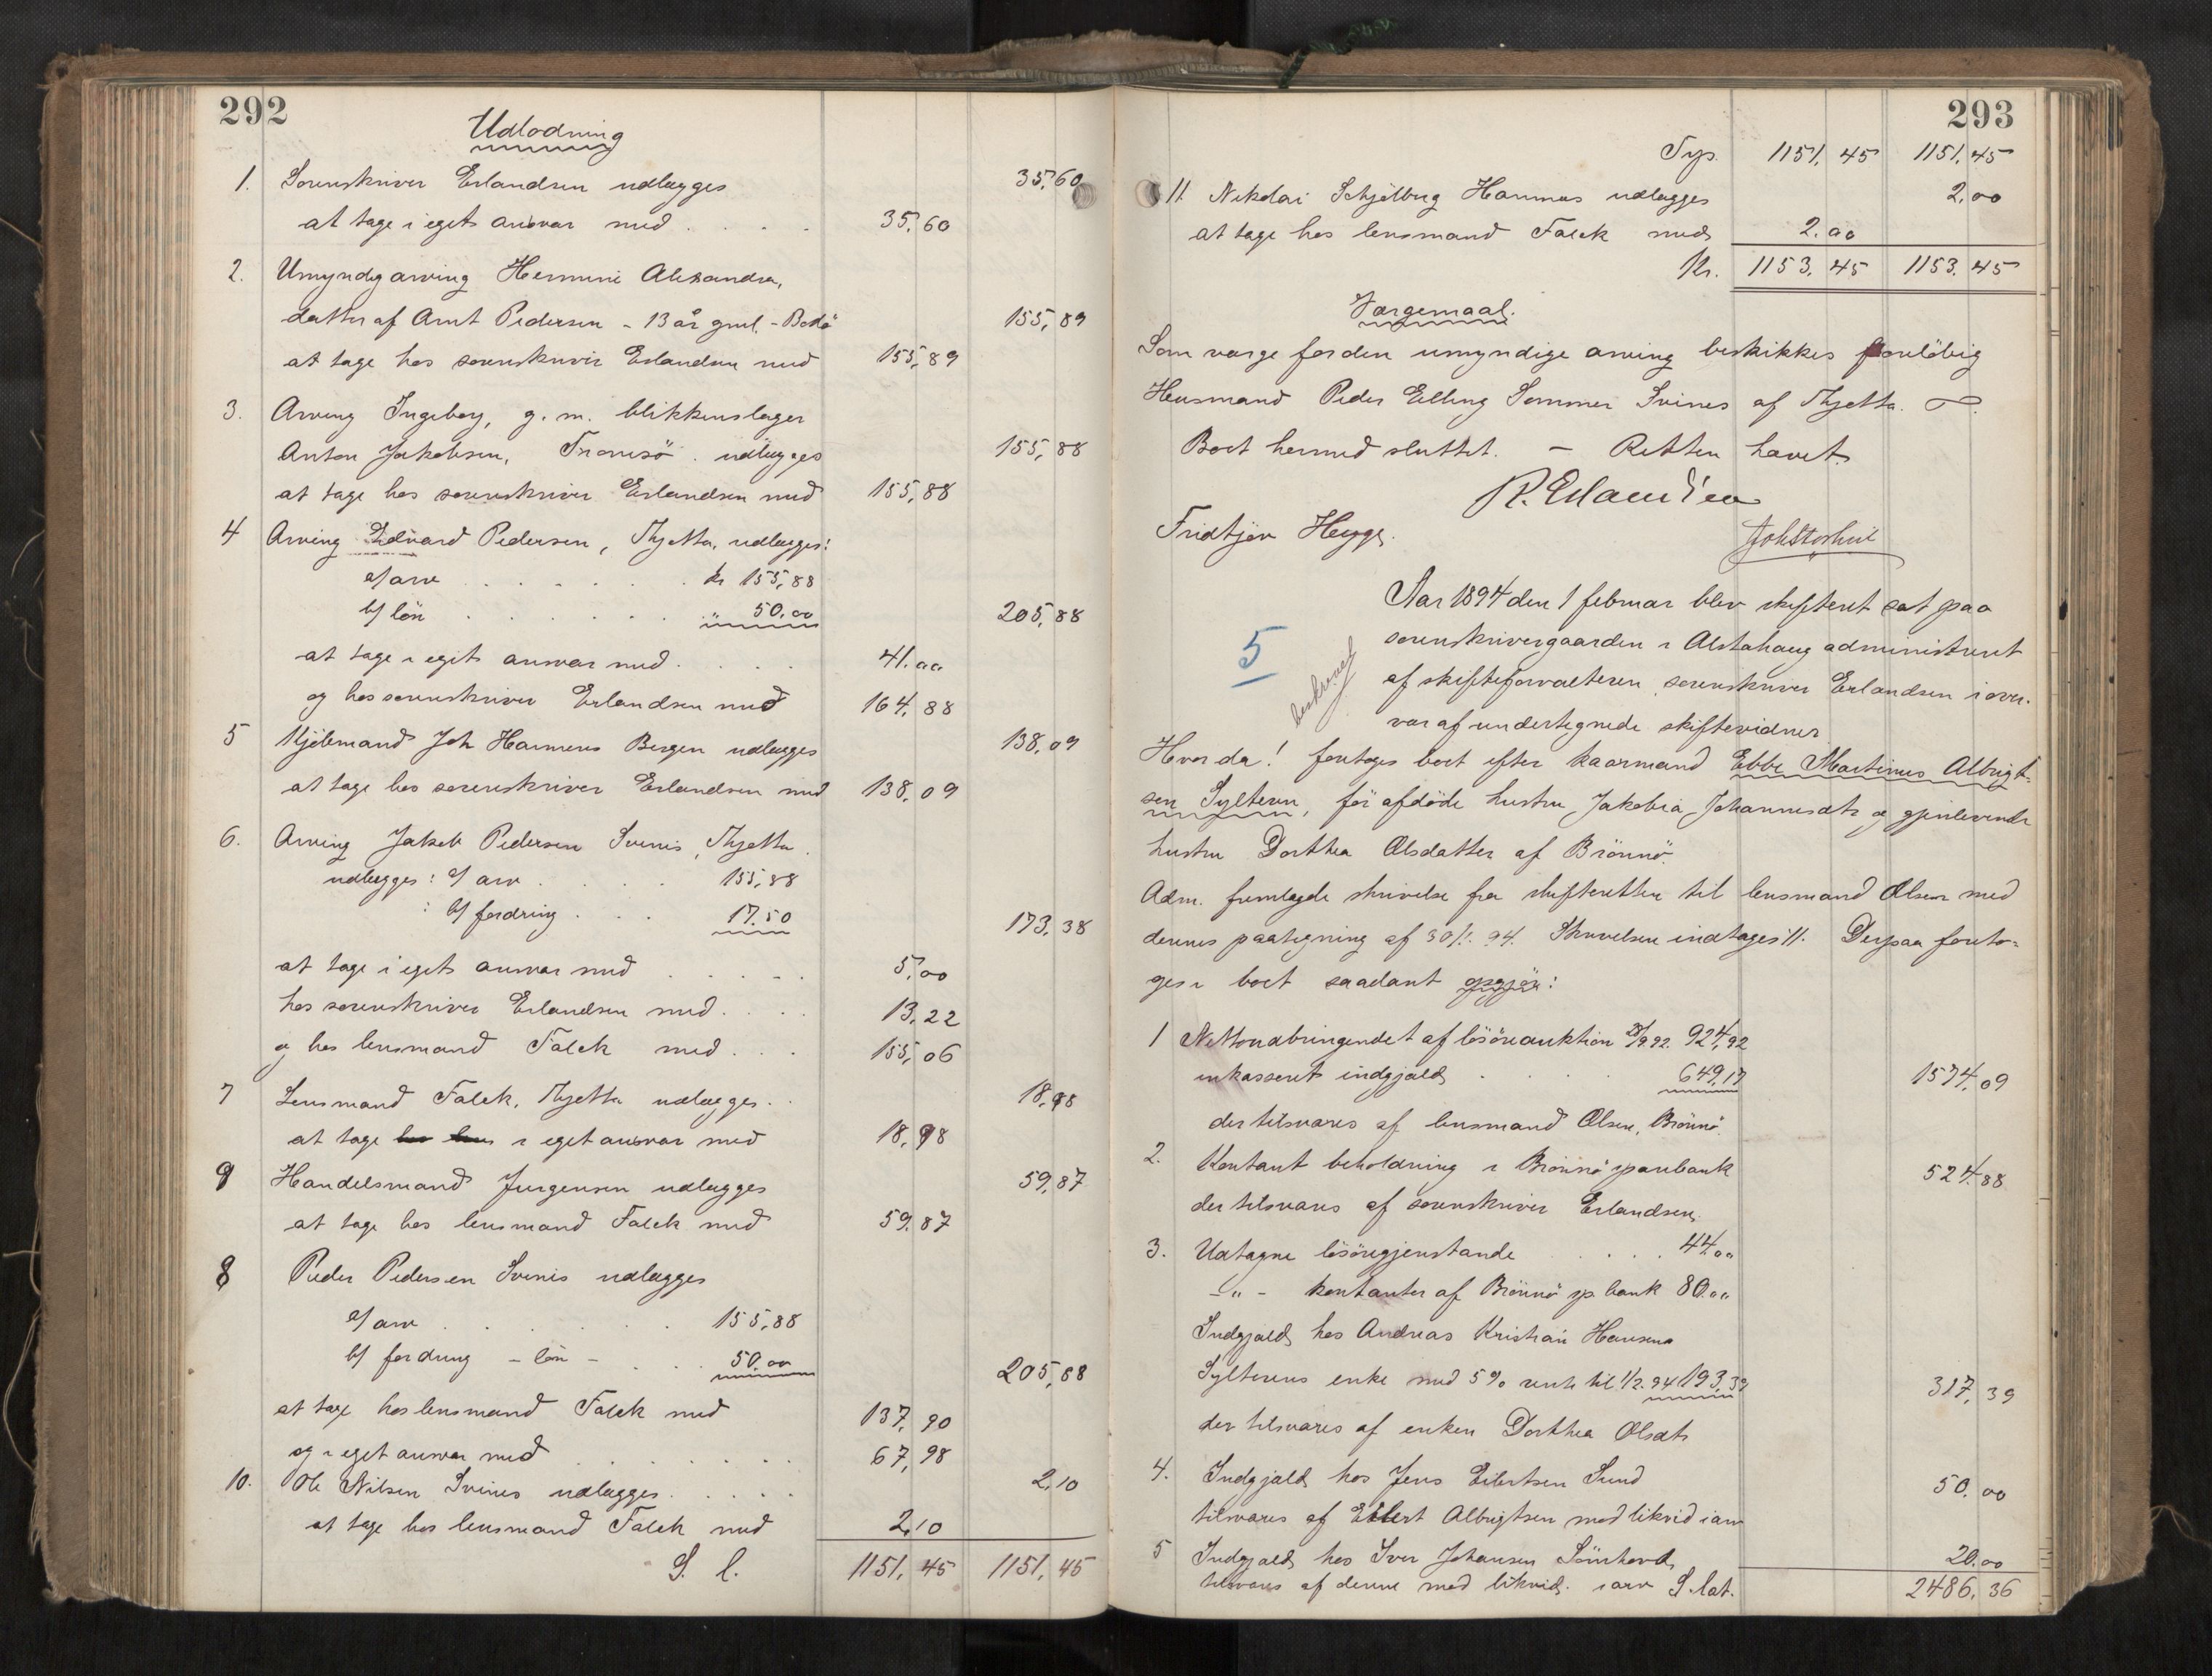 292
Udlodning
1. Sorenskriver Erlandsen udlægges 35,60
at tage i eget ansvar med . . . . 35,60
2. Umyndig arving Hermine Alexandra,
datter af Arnt Pedersen - 13 år gml. - Bodö 155,89
at tage hos sorenskriver Erlandsen med 155,89
3. Arving Ingeborg, g. m. blikkenslager
Anton Jakobsen, Tromsö. udlægges 155,88
at tage hos sorenskriver Erlandsen med 155,88
4 Arving Edvard Pedersen, Thjøtta, udlægges:
a/ arv . . . . . . kr 155,88
b/ lön . . . . . . " 50.00 205,88
at tage i eget ansvar med . . . . 41.00
og hos sorenskriver Erlandsen med 164,88
5 Kjöbmand Joh Harmens Bergen udlægges 138,09
at tage hos sorenskriver Erlandsen med 138,09
6. Arving Jakob Pedersen Svines, Thjøtta.
udlægges: a/ arv . . . . 155,88
: b/ fordring . . . 17.50 173,38
at tage i eget ansvar med . . . . . 5,00
hos sorenskriver Erlandsen med . . . . 13,22
og hos lensmand Falck med . . . 155,06
7 Lensmand Falck, Thjøtta udlægges . . 18,98
at tage i eget ansvar med 18,98
9 Handelsmand Jurgensen udlægges 59,87
at tage hos lensmand Falck med 59,87
8 Peder Pedersen Svines udlægges
a/ arv . . . . . . 155,88
b/ fordring - lön - . . . 50.00 205,88
at tage hos lensmand Falck med 137,90
og i eget ansvar med . . . . . . . 67,98
10. Ole Nilsen Svines udlægges . . . . . 2,10
at tage hos lensmand Falck med 2,10
S. l. 1151,45 1151,45
293
Trsp. 1151,45 1151,45
11 Nikolai Schjelbrg Harmens udlægges 2,00
at tage hos lensmand Falck med 2.00
Kr. 1153,45 1153,45
Værgemaal.
Som værge for den umyndige arving beskikkes foreløbig
Husmand Peder Elling Sommer Svines af Thjøtta.
Boet hermed sluttet. - Retten hævet.
R. Erlandsen
Fridtjov Hegge.
Aar 1894 den 1 februar blev skifteret sat paa
5
sorenskrivergaarden i Alstahaug administreret
beskrevet
af skifteforvalteren, sorenskriver Erlandsen i over-
vær af undertegnede skiftevidner
Hvorda! foretoges boet efter kaarmand Ebbe Martinus Albrigt-
sen Sylteren, før afdöde hustru Jakobea Johannesdtr og gjenlevende
hustru Dorthea Olsdatter af Brönnö.
Adm. fremlagde skrivelse fra skifteretten til lensmand Olsen med
dennes paategning af 30/1. 94. Skrivelsen indtages //. Derpaa foreto-
ges i boet saadant opgjör:
1 Nettoudbringendet af lösöreauktion 28/9 92. 924,92
inkasseret indgjæld . . . . 649,17 1574,09
der tilsvares af lensmand Olsen, Brönnö.
2. Kontant beholdning i Brönnö sparebank 524,88
der tilsvares af sorenskriver Erlandsen.
3. Udtagne lösöregjenstande . . . . 44,00
- " - kontanter af Brönnö sp. bank 80.00
Indgjæld hos Andreas Kristian Hansens
Sylterens enke med 5% rente til 1/2. 94 193,39 317,39
der tilsvares af enken Dorthea Olsdtr
4. Indgjæld hos Jens Eilertsen Sund 50.00
tilsvares af Eilert Albrigtsen mod likvid i arv
5 Indgjæld hos Iver Johansen 20.00
tilsvares af denne mod likvid. i arv S. lat. 2486,36